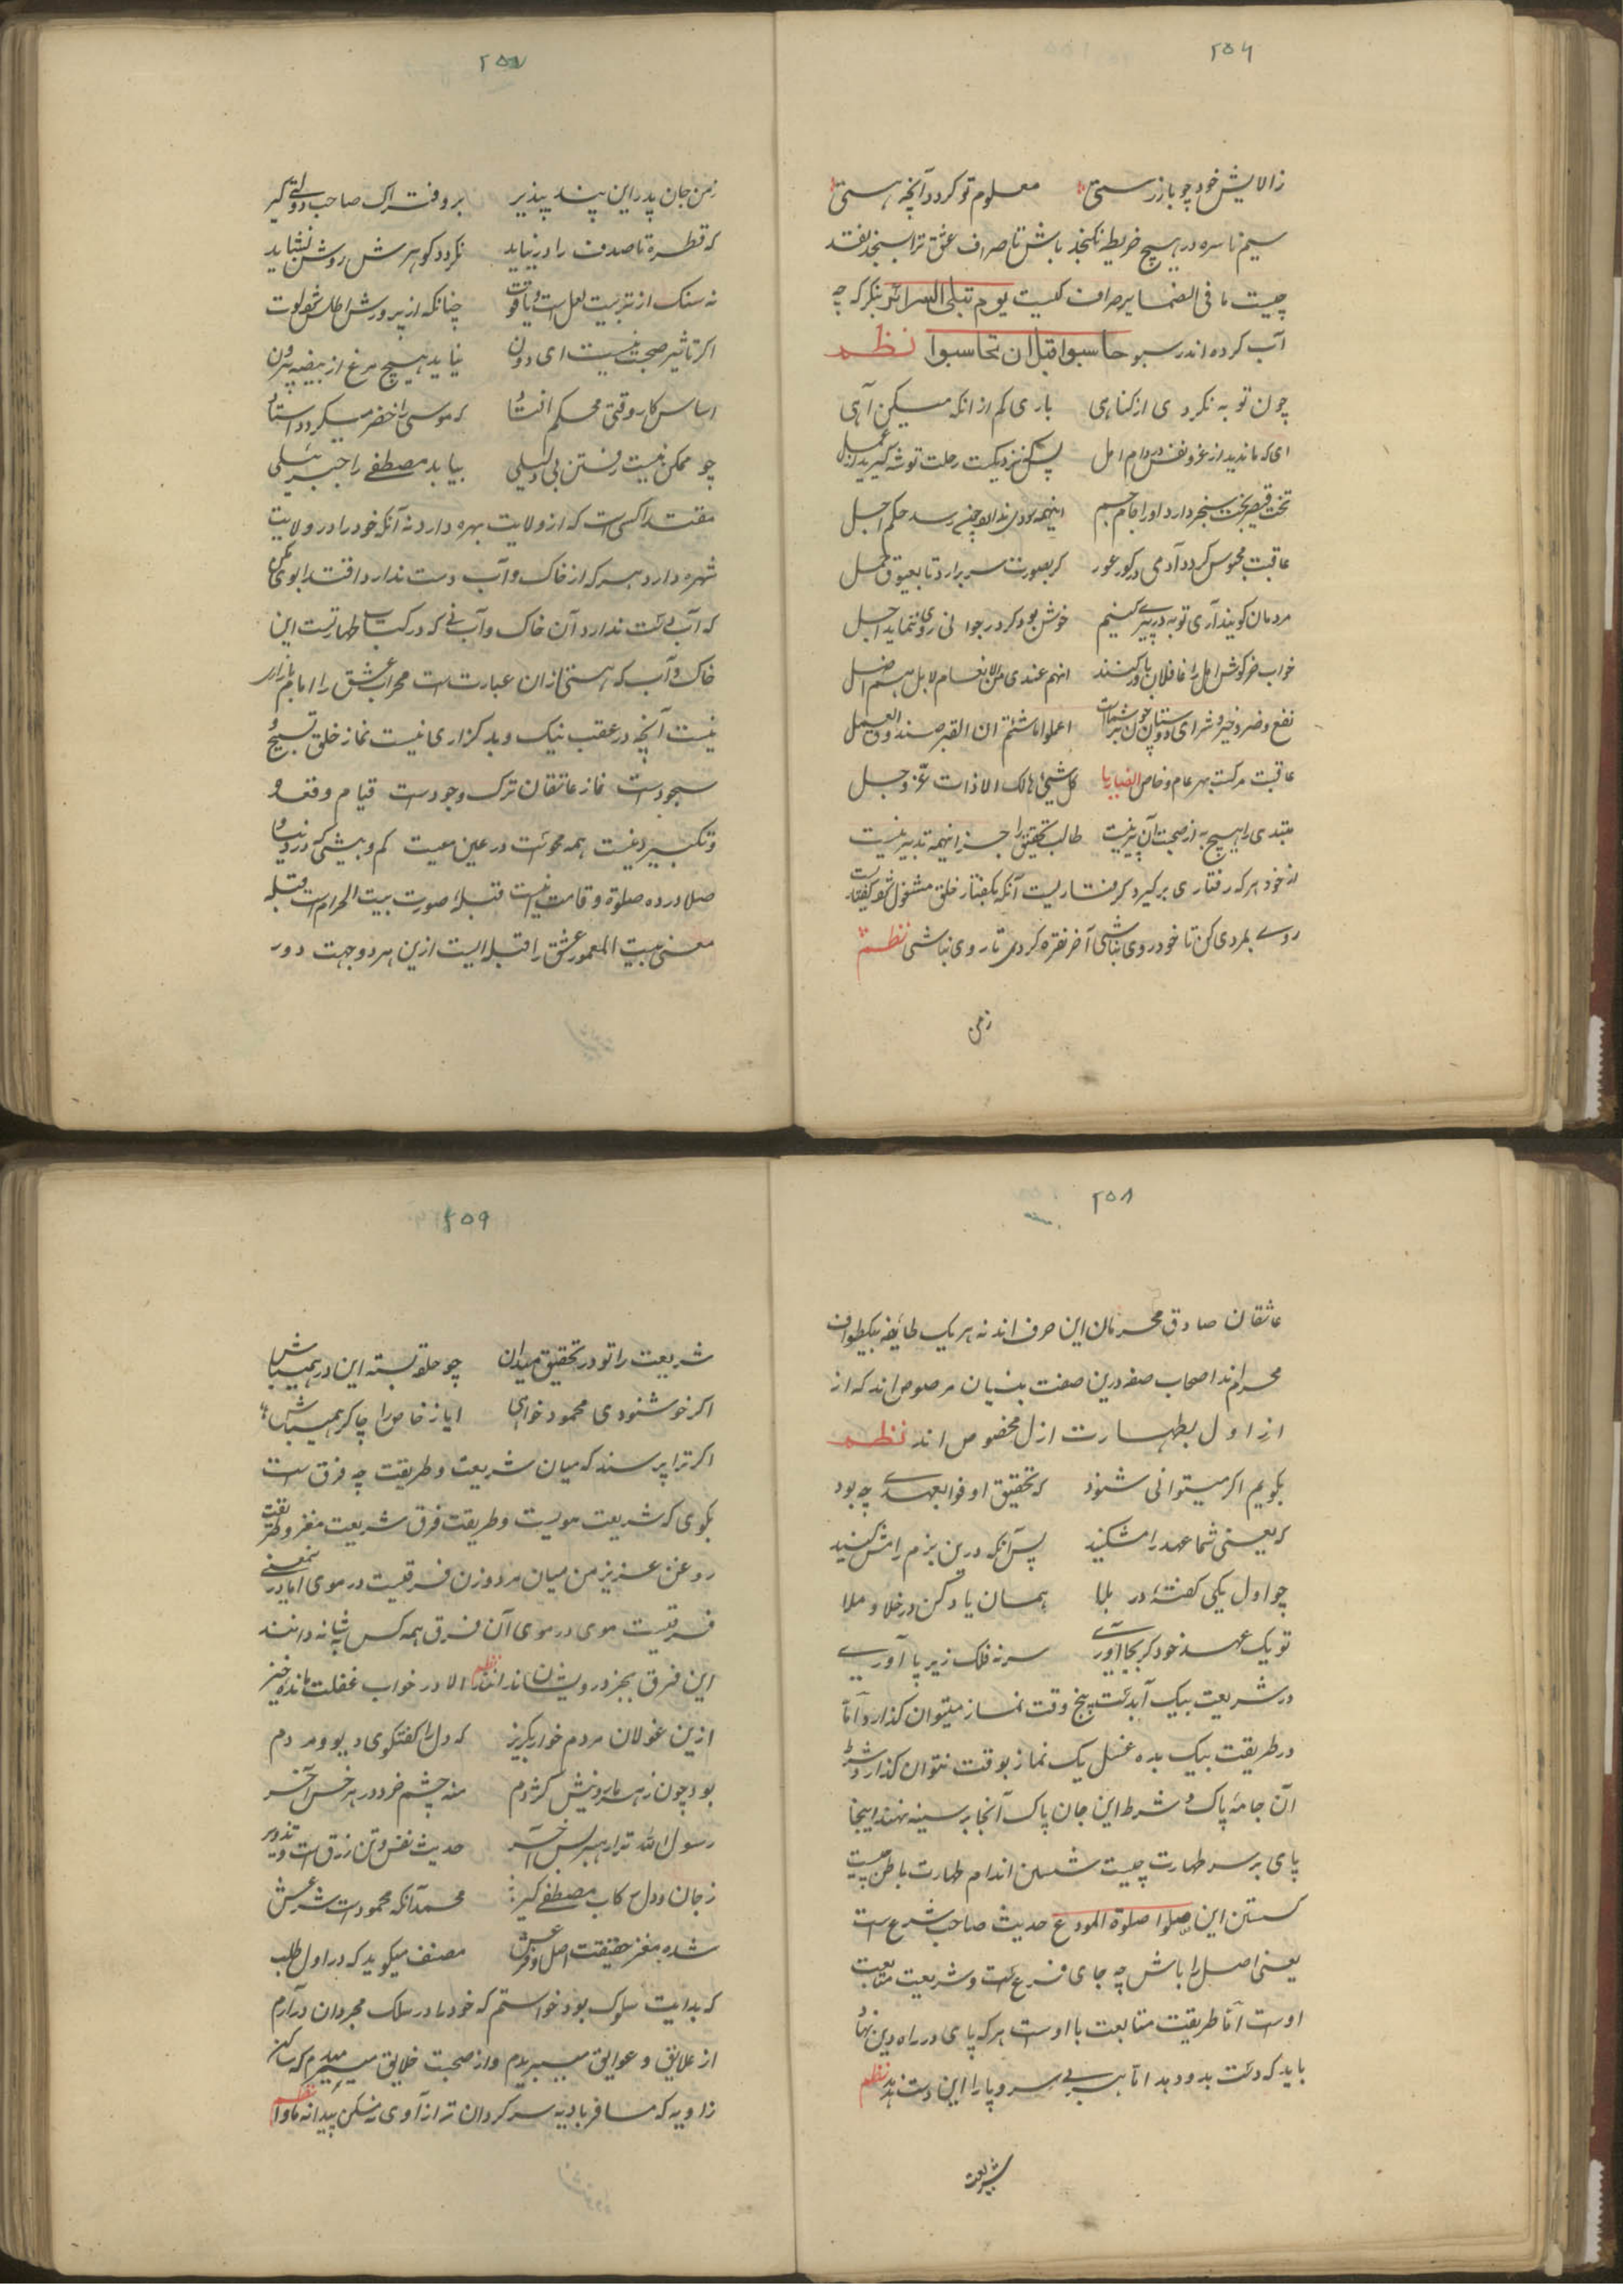 ۲۵۶
ز الایش خود چو باز رستی معلوم تو کردد آنچه هستی
سیم ناسره در هیچ خریطه نکنجد باش تا صراف عشق ترا بسنجد نقد
چیست ما فی الضمایر صراف کیست یوم تبلی السرائر بنکر که چه
آب کرده اندر سبو حاسبوا قبل ان تحاسبوا نظم
چون توبه نکردی از کناهی باری کم از انکه میکن آهی
ای که ماندید از غرور نفس در دام امل نزدیکست رحلت توشه کیرید از عمل
تخت قیصر بخت سنجر دارد او را جام جم اینهمه سودی ندارد چون رسد حکم اجل
عاقبت محبوس کردد آدمی در کور عور کر بصورت سر برارد تا بعیوق حمل
مردمان کویند آری توبه در پیری کنیم خوش بود کر در جوانی روی ننماید اجل
خواب خرکوش امل را غافلان باور کنند انهم عندی من الانعام لا بل هم اضل
نفع و ضر و خیر و شر ای دوستان چون شماست اعملوا ما شئتم ان القبر صندوق العمل
عاقبت مرکست بهر عام و خاص کل شیئ هالک الا ذات عز و جل
مبتدی را هیچ به از صحبت آن پیر نیست طالب تحقیق را جز اینهمه تدبیر نیست
از خود هر که رفتاری برکیرد کرفتاریست آنکه بکفتار خلق مشغول شود کفتاریست
روی بمردی کن تا خودروی نباشی آخر نقره کردی تا روی نباشی نظم
زمن
۲۵۷
زمن جان پدر این پند بپذیر برو فتراک صاحب دولتی کیر
که قطره تا صدف را در نیاید نکردد کوهر روشن نشاید
نه سنک از تربیت لعل است و یاقوت چنانکه از پرورش اطلس شود توت
اکر تاثیر صحبت نیست ای دون نیاید هیچ مرغ از بیضه بیرون
اساس کار وقتی محکم افتاد که موسی را خضر میکرد استاد
چو ممکن نیست رفتن بی دلیلی بیابد مصطفے را جبرئیلی
مقتدا کسی است که از ولایت بهره دارد نه آنکه خود را در ولایت
شهره دارد هر که از خاک و آب دست ندارد اقتدا بوی مکن
که آب دست ندارد آن خاک و آب نی که در کتاب طهارتست این
خاک و آب که هستی ازان عبارتست محراب عشق را امام بازاری
نیست آنچه در عقب نیک و بد کزاری نیست نماز خلق تسبیح و
سجودست نماز عاشقان ترک وجودست قیام و قعود
و تکبیر و نیت همه محو است در عین معیت کم و بیشی که در دنیا
صلا در ده صلوة و قامت نیست قبله صورت بیت الحرام است قبله
معنی بیت المعمور عشق را قبله ایست ازین هر دو جهت دور
۲۵۸
عاشقان صادق محرمان این حرف اند نه هر یک طائفه بیکطواف
محرم اند اصحاب صفه درین صفت بنیان مرصوص اند که از
از اول بطهارت ازل مخصوص اند نظم
بکویم اکر میتوانی شنود که تحقیق اوفوا بعهدی چه بود
که یعنی شما عهد را مشکنید پس آنکه درین بزم رامش کنید
چو اول یکی کفتهٔ در بلا همان یاد کن در خلا و ملا
تو یک عهد خود کر بجا آوری سر نه فلک زیر پا آوری
در شریعت بیک آبدست پنج وقت نماز میتوان کذارد اما
در طریقت بیک بده غسل یک نماز بوقت نتوان کذارد شرط
آن جامهٔ پاک و شرط این جان پاک آنجا بر سینه نهند اینجا
پای بر سر طهارت چیست شستن اندام طهارت باطن چیست
کسستن این صلوا صلوة المودع حدیث صاحب شرع است
یعنی اصل را باش چه جای فرع است و شریعت متابعت
اوست اما طریقت متابعت با اوست هر که پای در راه دین نهاد
باید که دست بدو دهد اما هر بی سر و پا را این دست ندهد نظم
شریعت
۲۵۹
شریعت را تو در تحقیق میدان چو حلقه بسته این در همیباش
اکر خوشنودی محمود خواهی ایاز خاص را چاکر همیباش
اکر ترا پرسند که میان شریعت و طریقت چه فرق است
بکوی که شریعت مویست و طریقت فرق شریعت مغز و طریقت
روغن عزیز من میان مرد و زن فرقیست در موی اما در معنی
فرقیست موی در موی آن فرق همه کس بشانه دانند
این فرق بجز درویشان ندانند الا در خواب غفلت مانده خیز نظم
ازین غولان مردم خوار بکریز که دل را کفتکوی دیو و مردم
بود چون زهر مار و نیش کژدم منه چشم خرد در هر خس آخر
رسول الله ترا رهبر بس آخر حدیث نفس و تن زرق است و تزویر
ز جان و دل رکاب مصطفے کیر محمد آنکه محمود است شرعش
شده مغز حقیقت اصل و فرعش مصنف میکوید که در اول طلب
که بدایت سلوک بود خواستم که خود را در سلک مجردان در آرم
از علایق و عوایق میبریدم و از صحبت خلایق میرمیدم که ساکن
زاویه که مسافر بادیه سرکردان تر از آوی نه مسکن پیدا نه ماوا نظم